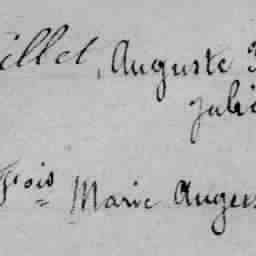 illet, Auguste
Juli
çois Marie Augus